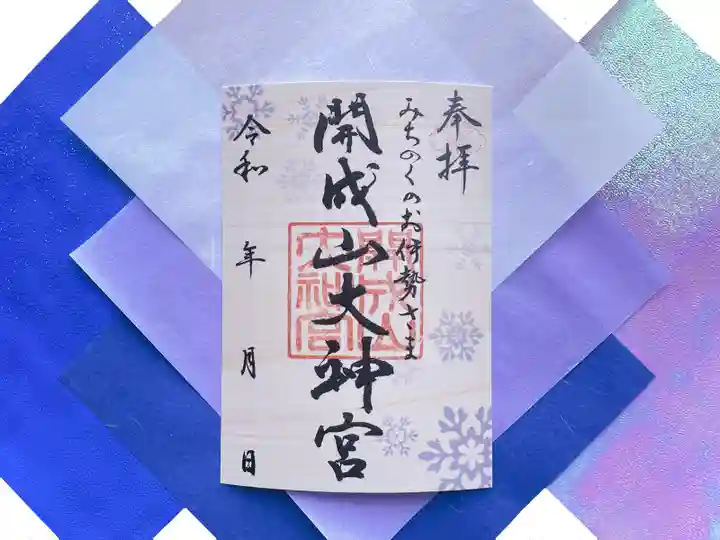 奉拝
みちのくのお伊勢さま
開成山大神宮
開成山
大神宮
令和 年 月 日